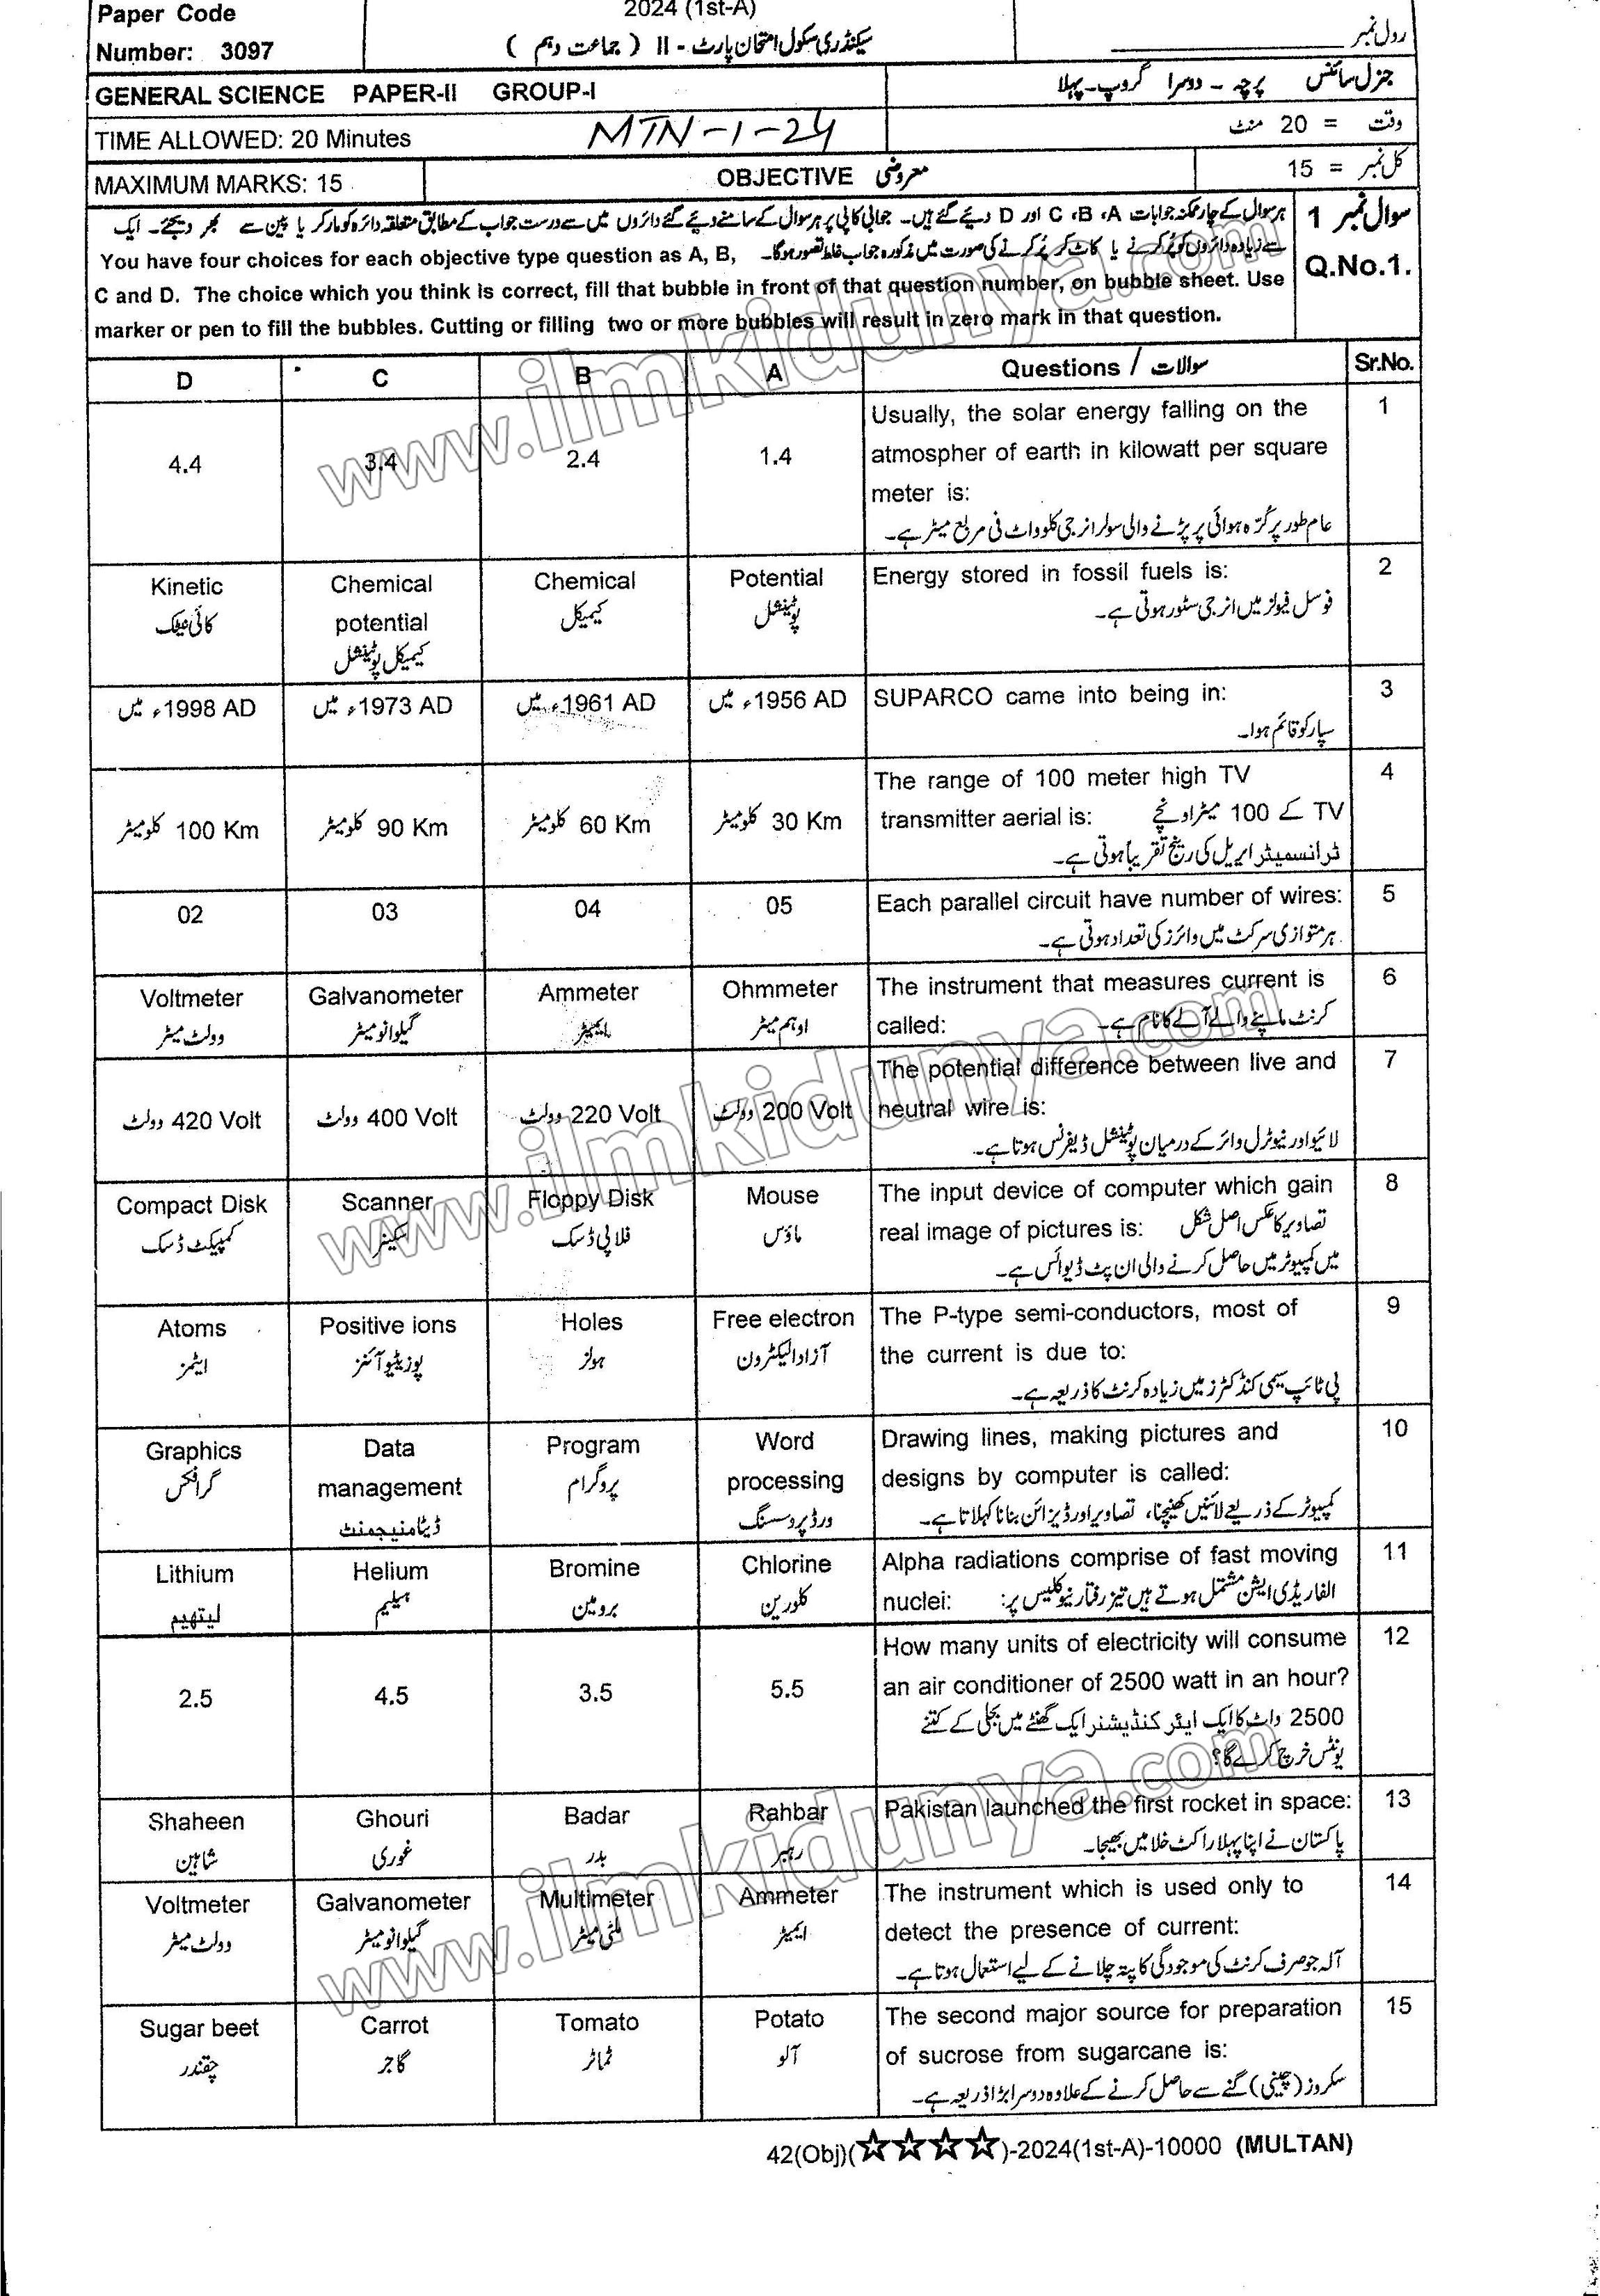 Paper Code
Number: 3097
2024 (1st-A)
سیکنڈری سکول امتحان پارٹ - II ( جماعت دہم )
رول نمبر
GENERAL SCIENCE PAPER-II GROUP-I
جنرل سائنس پرچہ - دوسرا گروپ - پہلا
TIME ALLOWED: 20 Minutes
MTN-1-24
وقت = 20 منٹ
MAXIMUM MARKS: 15
OBJECTIVE معروضی
کل نمبر = 15
سوال نمبر 1
Q.No.1.
ہر سوال کے چار ممکنہ جوابات A، B، C اور D دیئے گئے ہیں۔ جوابی کاپی پر ہر سوال کے سامنے دیئے گئے دائروں میں سے درست جواب کے مطابق متعلقہ دائرہ کو مارکر یا پین سے بھر دیجئے۔ ایک
سے زیادہ دائروں کو پُر کرنے یا کاٹ کر پُر کرنے کی صورت میں مذکورہ جواب غلط تصور ہوگا۔
You have four choices for each objective type question as A, B,
C and D. The choice which you think is correct, fill that bubble in front of that question number, on bubble sheet. Use
marker or pen to fill the bubbles. Cutting or filling two or more bubbles will result in zero mark in that question.
D C B A Questions / سوالات Sr.No.
1
Usually, the solar energy falling on the
atmospher of earth in kilowatt per square
meter is:
عام طور پر کُرّہ ہوائی پر پڑنے والی سولر انرجی کلوواٹ فی مربع میٹر ہے۔
4.4 3.4 2.4 1.4
2
Energy stored in fossil fuels is:
فوسل فیولز میں انرجی سٹور ہوتی ہے۔
Kinetic کائی نیٹک
Chemical potential کیمیکل پوٹینشل
Chemical کیمیکل
Potential پوٹینشل
3
SUPARCO came into being in:
سپارکو قائم ہوا۔
1998 AD ء میں
1973 AD ء میں
1961 AD ء میں
1956 AD ء میں
4
The range of 100 meter high TV
transmitter aerial is: TV کے 100 میٹر اونچے
ٹرانسمیٹر ایریل کی رینج تقریباً ہوتی ہے۔
100 Km کلومیٹر
90 Km کلومیٹر
60 Km کلومیٹر
30 Km کلومیٹر
5
Each parallel circuit have number of wires:
ہر متوازی سرکٹ میں وائرز کی تعداد ہوتی ہے۔
02 03 04 05
6
The instrument that measures current is
called: کرنٹ ماپنے والے آلے کا نام ہے۔
Voltmeter وولٹ میٹر
Galvanometer گیلوانومیٹر
Ammeter ایمیٹر
Ohmmeter اوہم میٹر
7
The potential difference between live and
neutral wire is:
لائیو اور نیوٹرل وائر کے درمیان پوٹینشل ڈیفرنس ہوتا ہے۔
420 Volt وولٹ
400 Volt وولٹ
220 Volt وولٹ
200 Volt وولٹ
8
The input device of computer which gain
real image of pictures is: تصاویر کا عکس اصل شکل
میں کمپیوٹر میں حاصل کرنے والی ان پٹ ڈیوائس ہے۔
Compact Disk کمپیکٹ ڈسک
Scanner سکینر
Floppy Disk فلاپی ڈسک
Mouse ماؤس
9
The P-type semi-conductors, most of
the current is due to:
پی ٹائپ سیمی کنڈکٹرز میں زیادہ کرنٹ کا ذریعہ ہے۔
Atoms ایٹمز
Positive ions پوزیٹیو آئنز
Holes ہولز
Free electron آزاد الیکٹرون
10
Drawing lines, making pictures and
designs by computer is called:
کمپیوٹر کے ذریعے لائنیں کھینچنا، تصاویر اور ڈیزائن بنانا کہلاتا ہے۔
Graphics گرافکس
Data management ڈیٹا منیجمنٹ
Program پروگرام
Word processing ورڈ پروسسنگ
11
Alpha radiations comprise of fast moving
nuclei: الفا ریڈی ایشن مشتمل ہوتے ہیں تیز رفتار نیوکلیس پر:
Lithium لیتھیم
Helium ہیلیم
Bromine برومین
Chlorine کلورین
12
How many units of electricity will consume
an air conditioner of 2500 watt in an hour?
2500 واٹ کا ایک ایئر کنڈیشنر ایک گھنٹے میں بجلی کے کتنے
یونٹس خرچ کرے گا؟
2.5 4.5 3.5 5.5
13
Pakistan launched the first rocket in space:
پاکستان نے اپنا پہلا راکٹ خلا میں بھیجا۔
Shaheen شاہین
Ghouri غوری
Badar بدر
Rahbar رہبر
14
The instrument which is used only to
detect the presence of current:
آلہ جو صرف کرنٹ کی موجودگی کا پتہ چلانے کے لیے استعمال ہوتا ہے۔
Voltmeter وولٹ میٹر
Galvanometer گیلوانومیٹر
Multimeter ملٹی میٹر
Ammeter ایمیٹر
15
The second major source for preparation
of sucrose from sugarcane is:
سکروز (چینی) گنے سے حاصل کرنے کے علاوہ دوسرا بڑا ذریعہ ہے۔
Sugar beet چقندر
Carrot گاجر
Tomato ٹماٹر
Potato آلو
42(Obj)(☆☆☆☆)-2024(1st-A)-10000 (MULTAN)
www.ilmkidunya.com
www.ilmkidunya.com
www.ilmkidunya.com